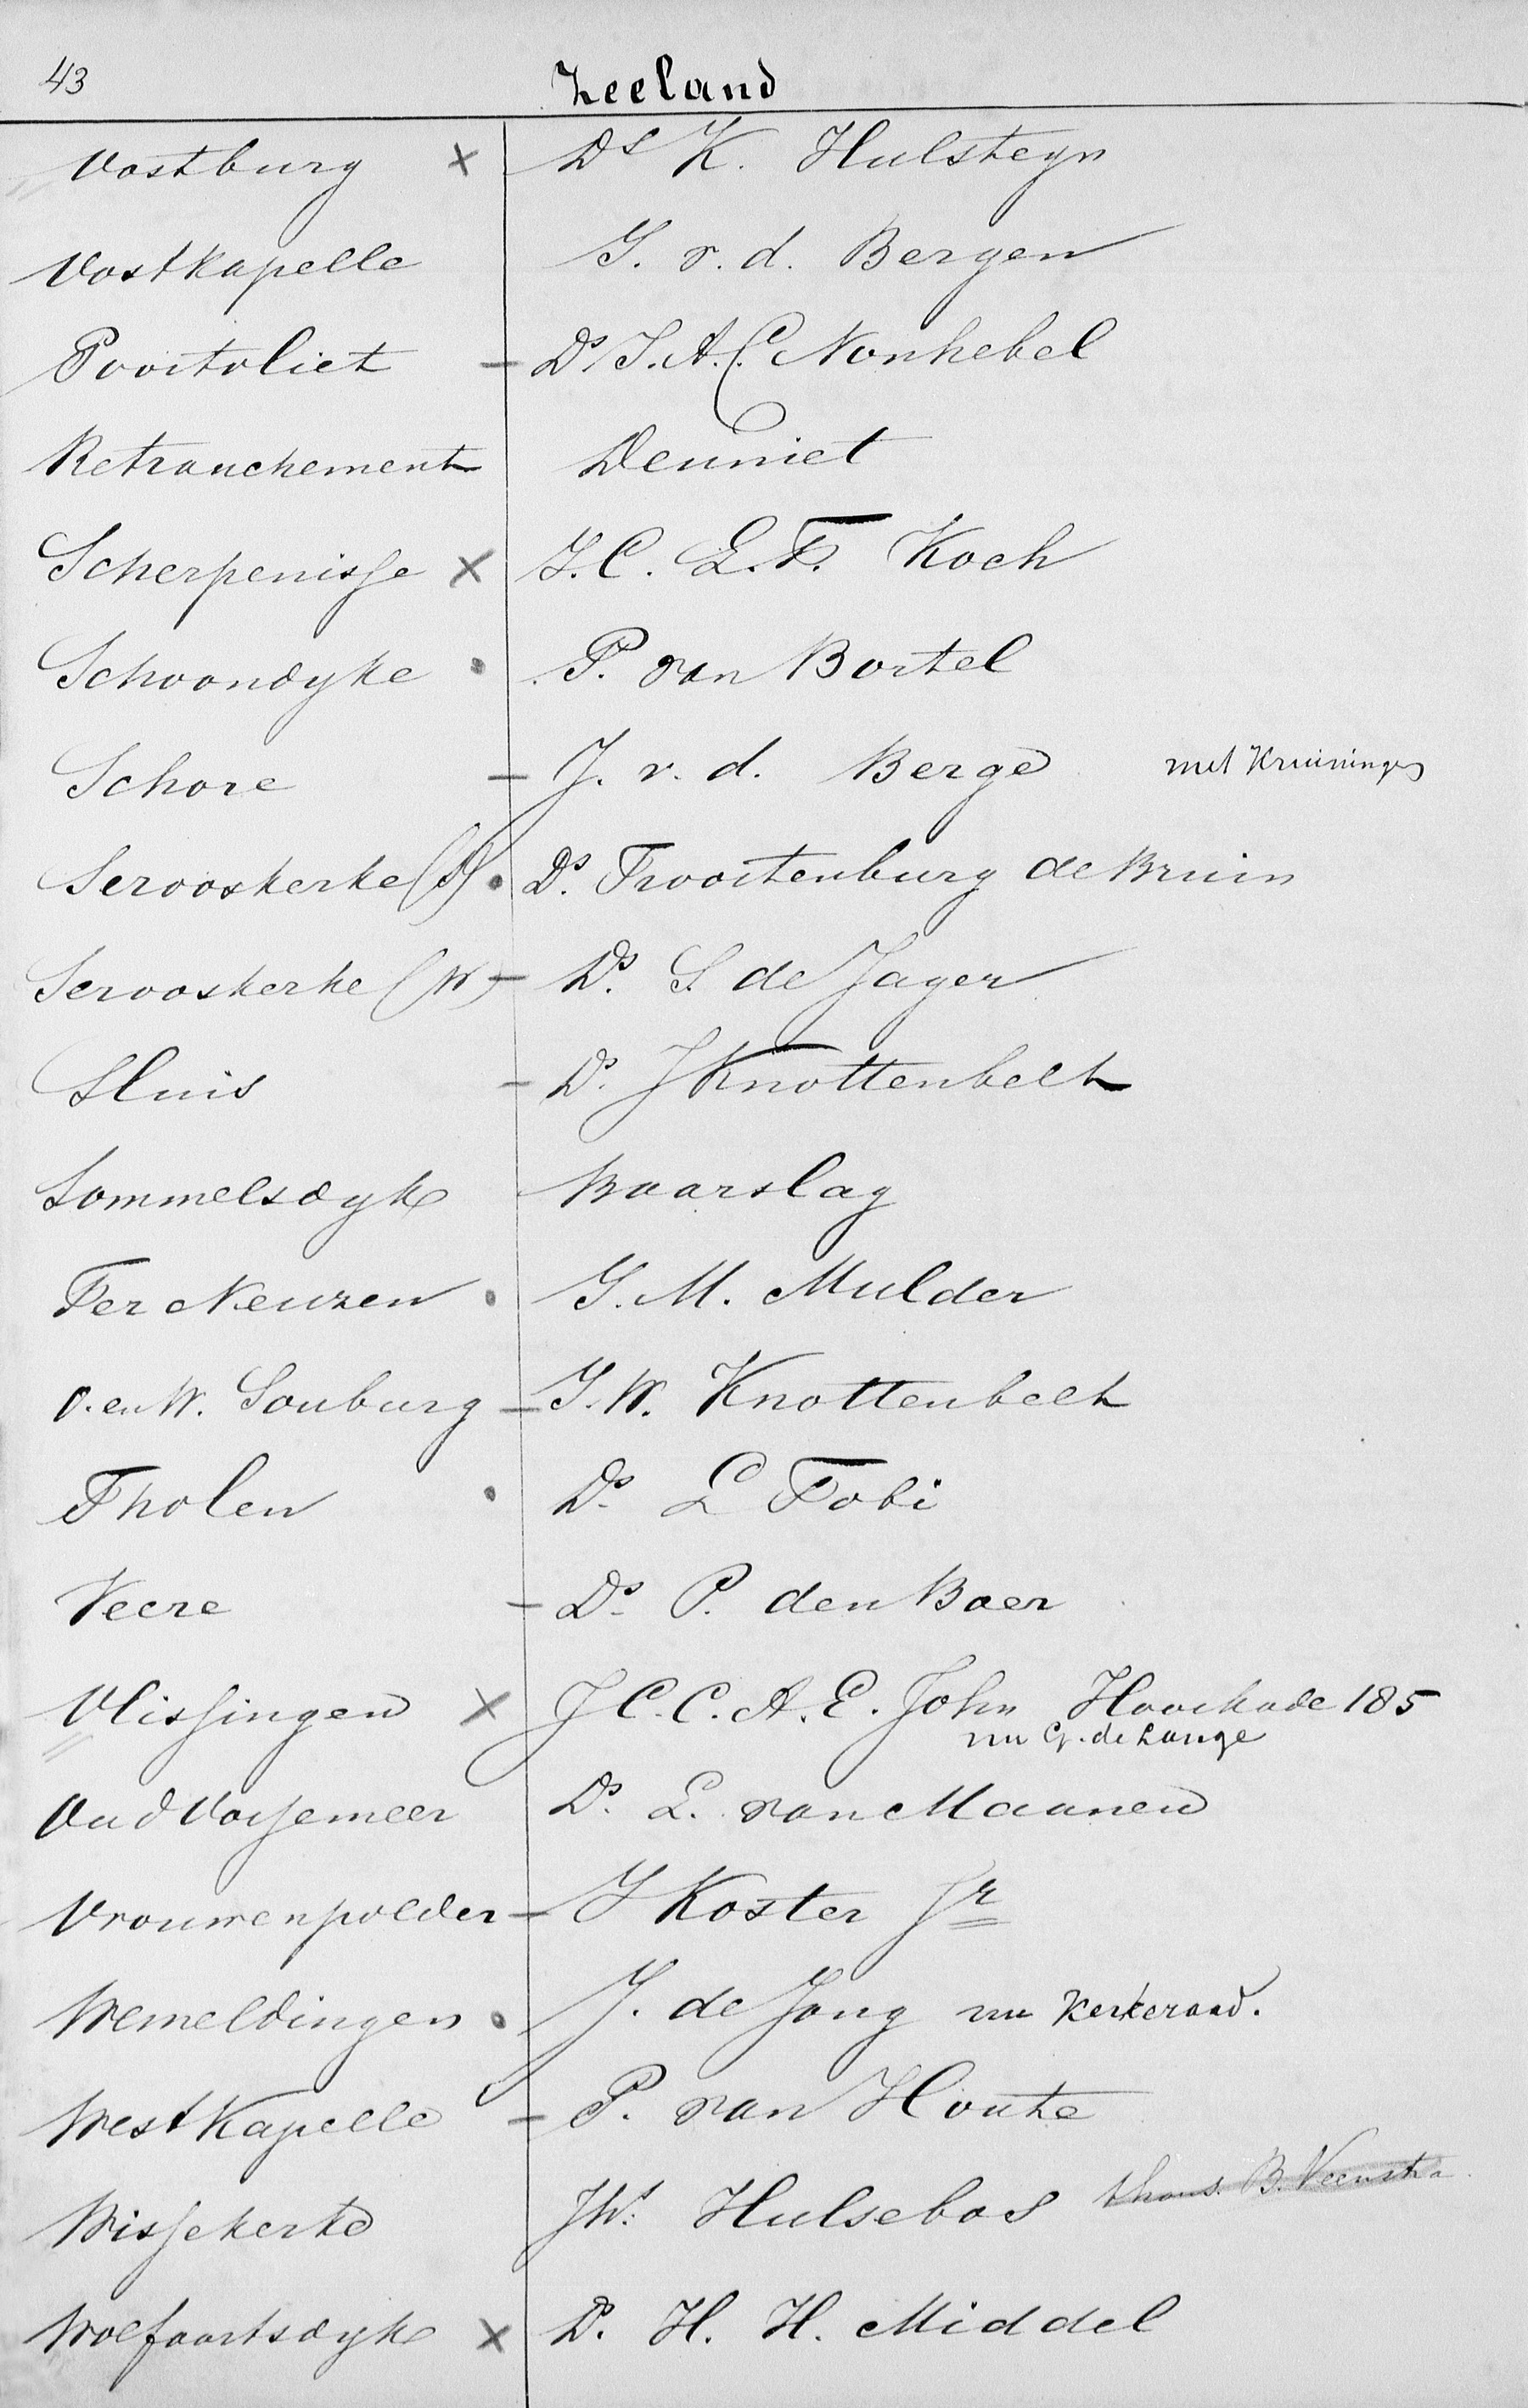 43 Zeeland
Oostburg x Ds K. Hulsteyn
Oostkapelle J. v. d. Bergen
Poortvliet - Ds J. A. C. Nonhebel
Retranchement Deuniet
Scherpenisse x J. C. L. F. Koch
Schoondyke • P. van Bortel
Schore - J. v. d. Berge met Kruiningen
Serooskerke (S) • Ds. Troostenburg de Bruin
Serooskerke (W) - Ds. S. de Jager
Sluis - Ds. J Knottenbelt
Sommelsdyk Baarslag
Ter Neuzen • J. M. Mulder
O. en W. Souburg - J. W. Knottenbelt
Tholen • Ds. L Tobi
Veere - Ds. P. den Boer
Vlissingen x J C. C. A. E. John Houtkade 185
nu G. de Lange
Oud Vossemeer Ds. L. van Maanen
Vrouwenpolder - J Koster Jr
Wemeldingen • J. de Jong nu Kerkeraad.
West Kapelle - P. van Houte
Wissekerke Hulsebos thans B. Veenstra
Wolfaartsdyk x Ds. H. H. Middel